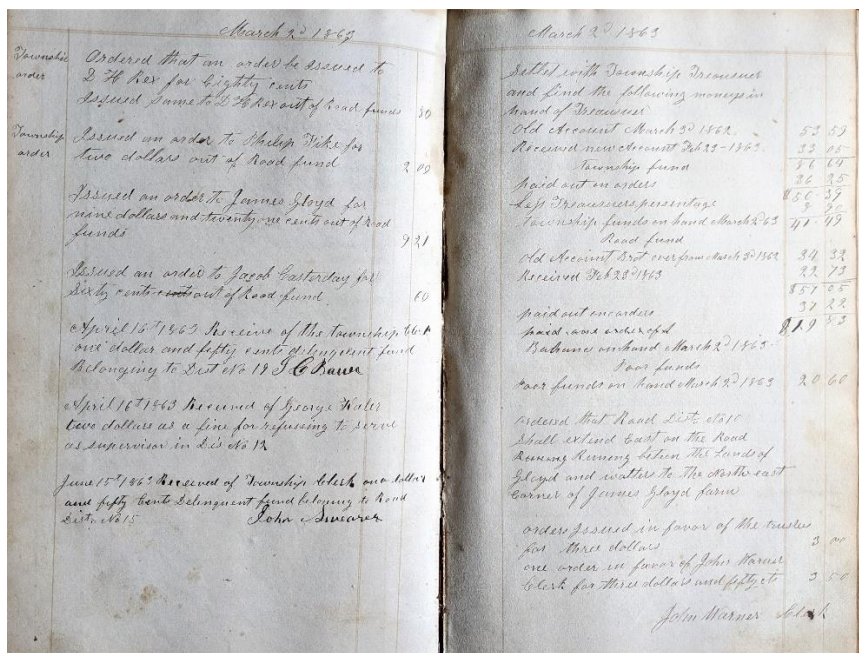 March 2d 1863
Township order
Ordered that an order be Issued to
D H Rex for Eighty cents
Issued Same to D H Rex out of Road funds 80
Township order
Issued an order to Philip Fike for
two dollars out of Road fund 2 00
Issued an order to James Gloyd for
nine dollars and twenty one cents out of Road
funds 9 21
Issued an order to Jacob Easterday for
Sixty cents cents out of Road fund 60
April 16th 1863 Receive of the township
one dollar and fifty cents delinquent fund
Belonging to Dist No 19
April 16th 1863 Received of George
two dollars as a fine for refusing to serve
as supervisor in Dis No 12
June 15th 1863 Received of Township Clerk one dollar
and fifty Cents Delinquent fund beloging to Road
Dist. No 15 John Swearer
March 2d 1863
Settled with Township Treasurer
and find the following moneys in
hand of Treasurer
Old Account March 3d 1862. 53 59
Received new Account Feb 23 - 1863. 33 05
Township fund 86 64
paid out on orders 36 25
$50 39
Less Treasurers percentage
Township funds on hand March 2d 63 41 49
Road fund
Old Account Brot over from March 3d 1862 34 32
Received Feb 23d 1863 22 73
$57 05
paid out on orders 37 22
paid one order of $19 83
Balance on hand March 2d 1863
Poor funds
Poor funds on hand March 2d 1863 20 60
ordered that Road Dist. No 11
Shall extend East on the Road
Running between the Lands of
Gloyd and walters to the North east
Corner of James Gloyd farm
orders Issued in favor of the trustees
for three dollars 3 00
one order in favor of John Warner
Clerk for three dollars and fifty cts 3 50
John Warner Clerk